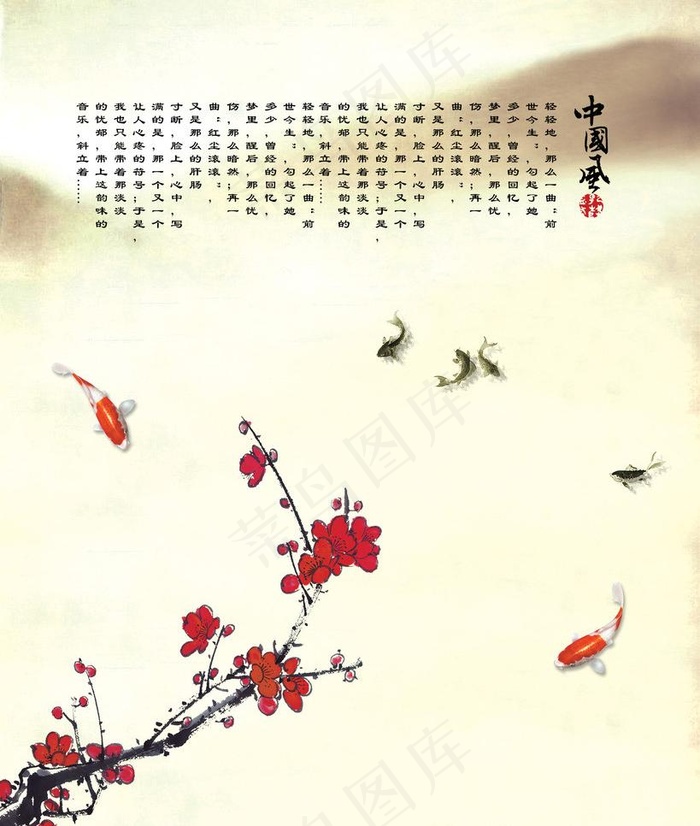 中國風
轻轻地，那么一曲：前
世今生：，勾起了她
多少，曾经的回忆，
梦里，醒后，那么忧
伤，那么暗然；再一
曲：红尘滚滚：，
又是那么的肝肠
寸断，脸上，心中，写
满的是，那一个又一个
让人心疼的符号；于是，
我也只能带着那淡淡
的忧郁，带上这韵味的
音乐，斜立着……
轻轻地，那么一曲：前
世今生：，勾起了她
多少，曾经的回忆，
梦里，醒后，那么忧
伤，那么暗然；再一
曲：红尘滚滚：，
又是那么的肝肠
寸断，脸上，心中，写
满的是，那一个又一个
让人心疼的符号；于是，
我也只能带着那淡淡
的忧郁，带上这韵味的
音乐，斜立着……
菜鸟图库